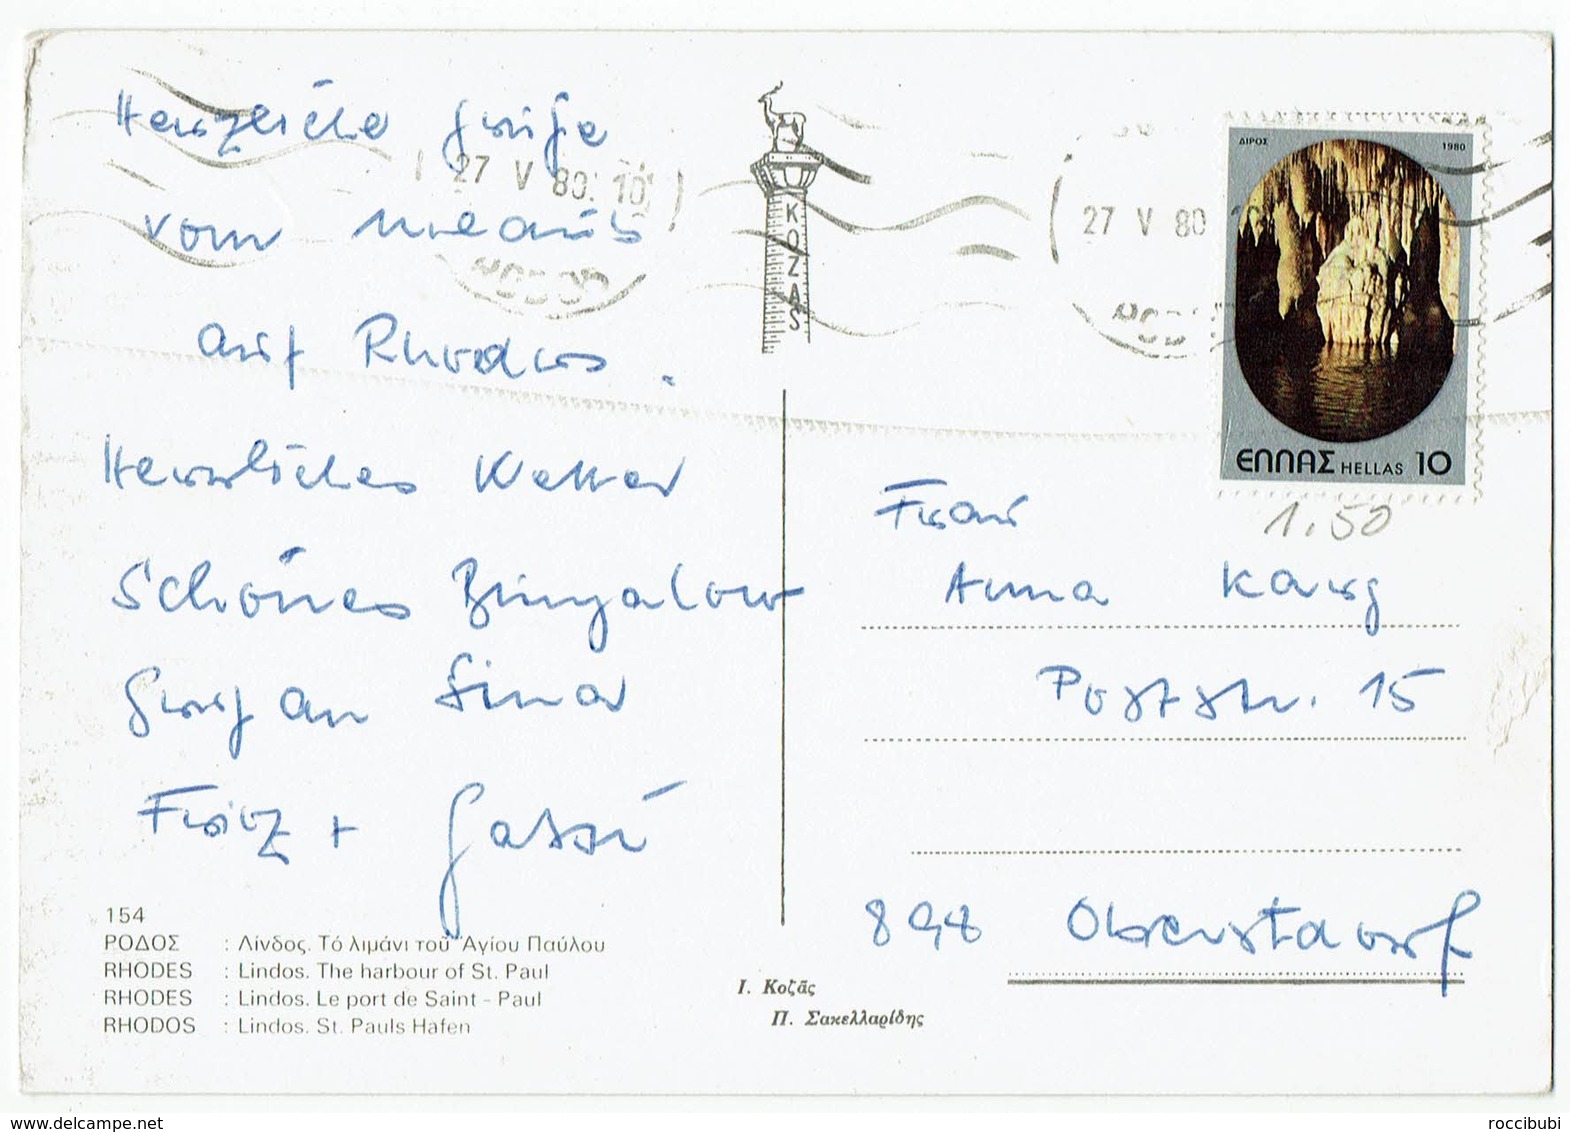 Herzliche Grüße
vom Urlaub
auf Rhodos.
Herrliches Wetter
Schönes Bungalow
Gruß an
Fritz +
27 V 80. 10
27 V 80
KOZAS
ΔΙΡΟΣ 1980
ΕΛΛΑΣ HELLAS 10
1.50
Frau
Anna Karg
Poststr. 15
898 Oberstdorf
154
ΡΟΔΟΣ : Λίνδος. Τό λιμάνι τοῦ Ἁγίου Παύλου
RHODES : Lindos. The harbour of St. Paul
RHODES : Lindos. Le port de Saint - Paul
RHODOS : Lindos. St. Pauls Hafen
Ι. Κοζᾶς
Π. Σακελλαρίδης
www.delcampe.net
roccibubi